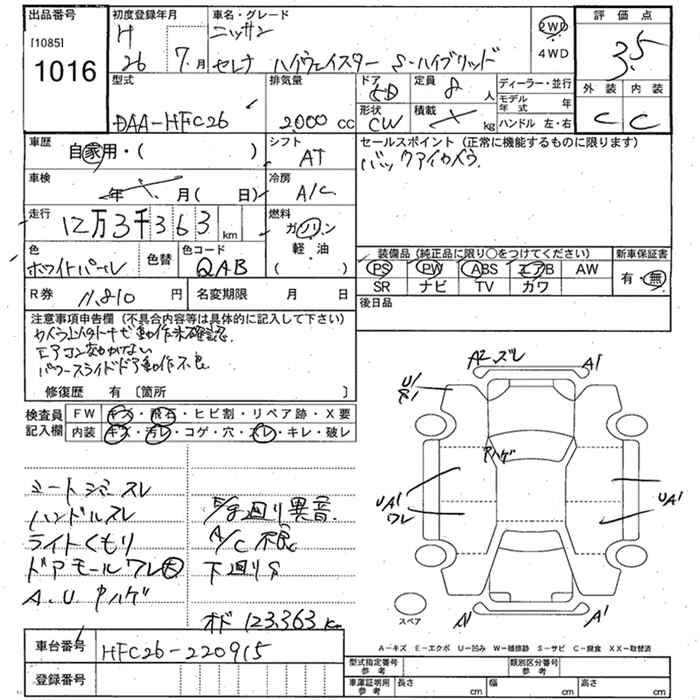 出品番号
[1085]
1016
初度登録年月
H
26 7月
車名・グレード
ニッサン
セレナ ハイウェイスター S-ハイブリッド
2WD
4WD
評価点
3.5
外装 内装
C C
型式
DAA-HFC26
排気量
2,000 cc
ドア
5D
定員
8人
形状
CW
積載
kg
ディーラー・並行
モデル年式 年
ハンドル 左・右
車歴
自家用・( )
シフト
AT
セールスポイント(正常に機能するものに限ります)
バックアイカメラ
車検
年 月(日)
冷房
A/C
走行
12万3千363 km
燃料
ガソリン
軽油
( )
色
ホワイトパール
色替
色コード
QAB
装備品(純正品に限り○をつけてください)
新車保証書
PS PW ABS エアB AW
SR ナビ TV カワ
有・無
R券
11,810 円
名変期限 月 日
後日品
注意事項申告欄(不具合内容等は具体的に記入して下さい)
動作未確認
パワースライドドア動作不良
修復歴 有〔箇所 〕
検査員記入欄
FW キズ・飛石・ヒビ割・リペア跡・X要
内装 キズ・汚レ・コゲ・穴・スレ・キレ・破レ
シートシミスレ
ハンドルスレ
ライトくもり
ドアモールワレ大
A.U.ハゲ
廻り異音
A/C不良
下廻りS
オド 123,363 km
A2.ズレ
A1
U1
ハゲ
UA1
ワレ
UA1
A1
A1
スペア
A-キズ E-エクボ U-凹み W-補修跡 S-サビ C-腐食 XX-取替済
車台番号
HFC26-220915
登録番号
型式指定番号
参考
類別区分番号
参考
車庫証明用
参考
長さ cm 幅 cm 高さ cm